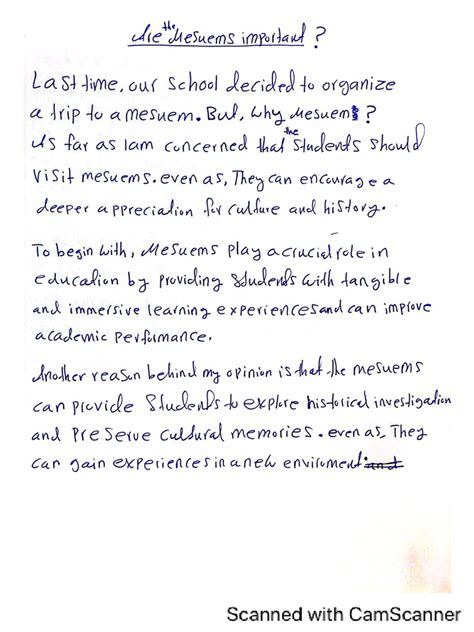 Are the Mesuems important ?
Last time, our school decided to organize
a trip to a mesuem. But, why mesuem ?
As far as Iam concerned that the students should
visit mesuems. even as, They can encourage a
deeper appreciation for culture and history.
To begin with, Mesuems play a crucial role in
education by providing students with tangible
and immersive learning experiences and can improve
academic performance.
Another reason behind my opinion is that the mesuems
can provide students to explore historical investigation
and preserve cultural memories. even as, They
can gain experiences in a new enviroment.
Scanned with CamScanner